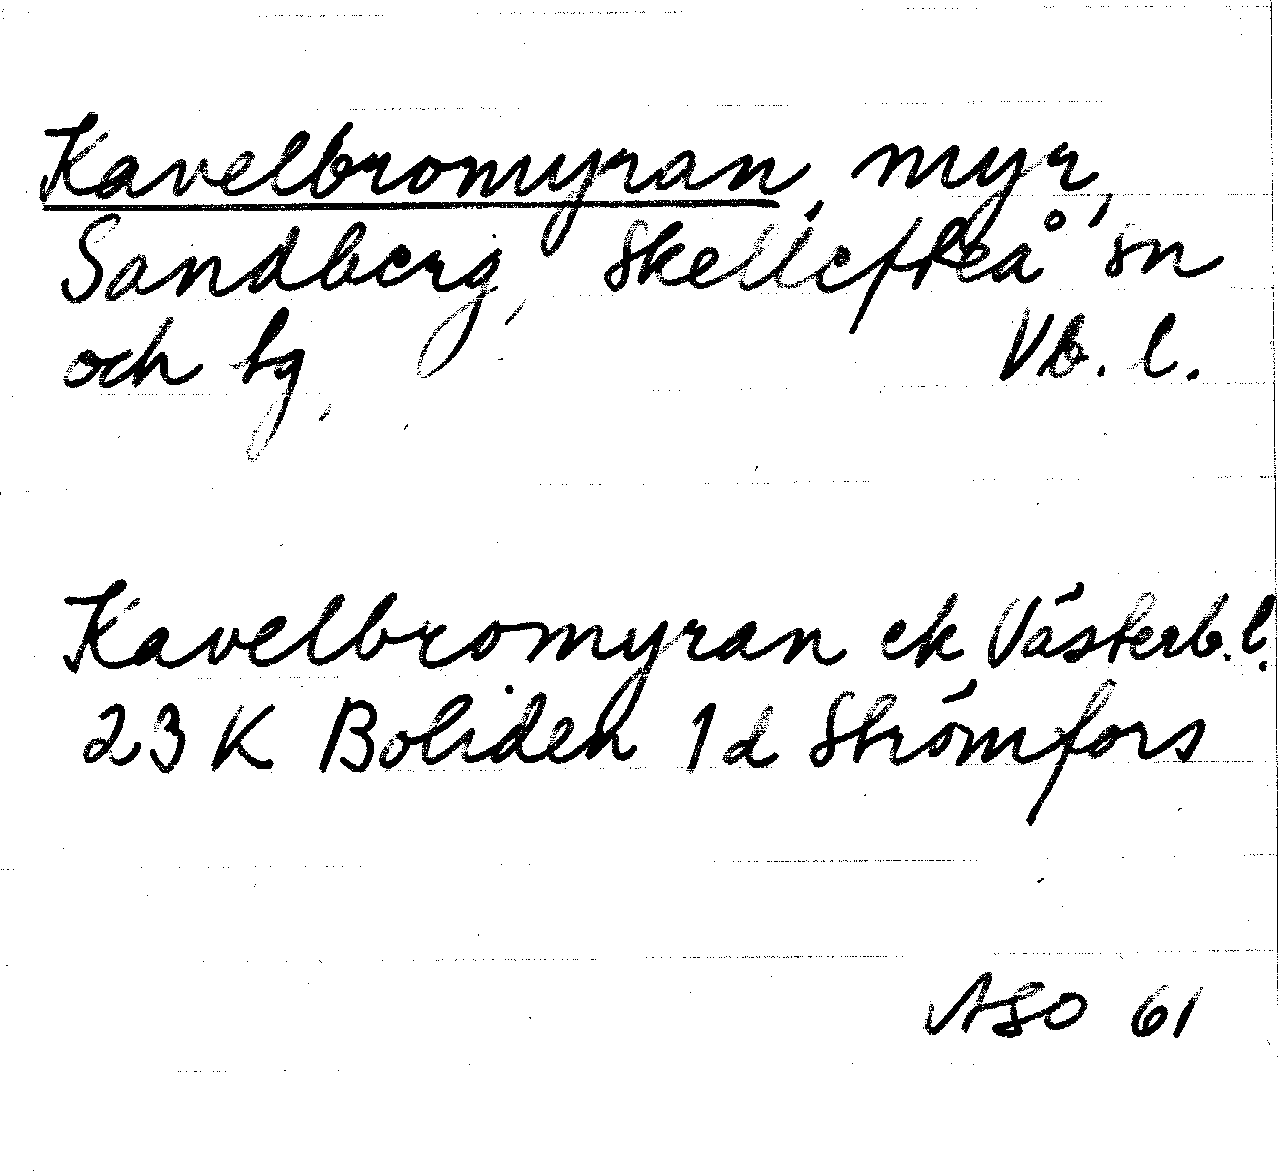 Kavelbromyran, myr,
Sandberg, Skellefteå sn
och tg, Vb. l.
Kavelbromyran ek Västerb. l.
23 K Boliden 1 d Strömfors
ASO 61